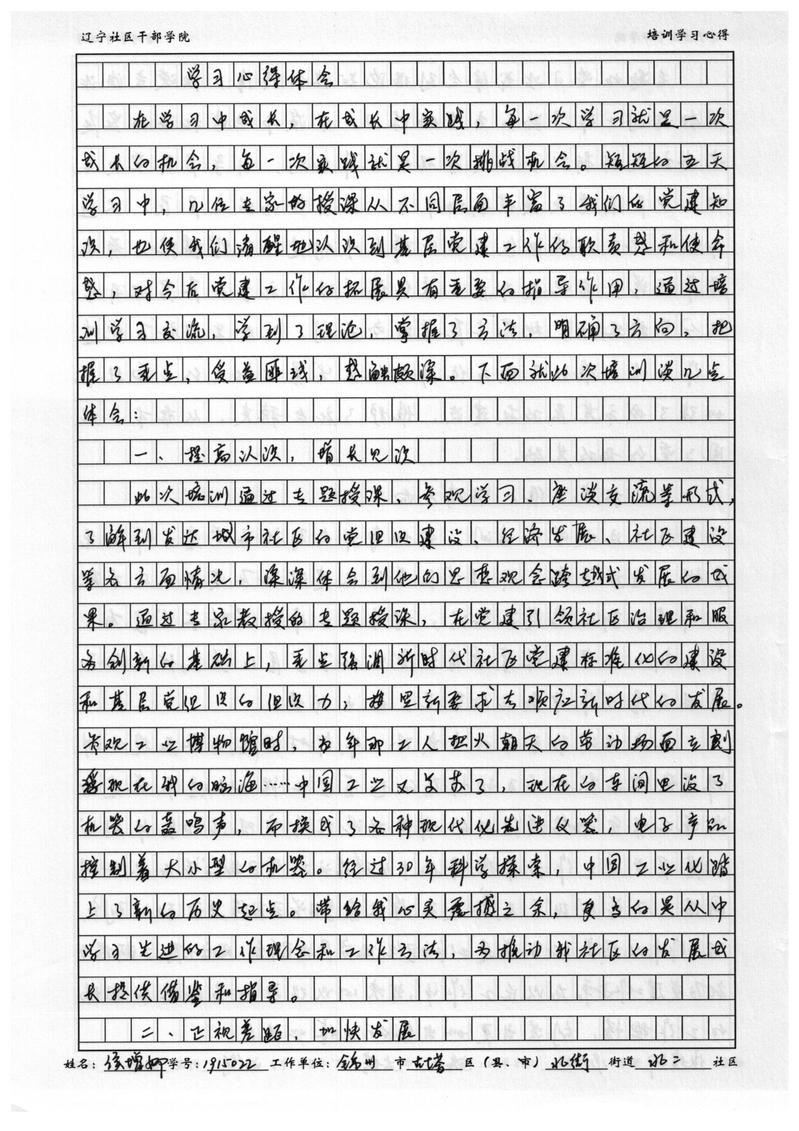 辽宁社区干部学院 培训学习心得
学习心得体会
在学习中成长，在成长中实践，每一次学习就是一次
成长的机会，每一次实践就是一次挑战机会。短短的五天
学习中，几位专家的授课从不同层面丰富了我们的党建知
识，也使我们清醒地认识到基层党建工作的职责感和使命
感，对今后党建工作的拓展具有重要的指导作用，通过培
训学习交流，学到了理论，掌握了方法，明确了方向，把
握了重点，受益匪浅，感触颇深。下面就此次培训谈几点
体会：
一、提高认识，增长见识
此次培训通过专题授课、参观学习、座谈交流等形式，
了解到发达城市社区的党组织建设、经济发展、社区建设
等各方面情况，深深体会到他们思想观念跨越式发展的成
果。通过专家教授的专题授课，在党建引领社区治理和服
务创新的基础上，重点强调新时代社区党建标准化的建设
和基层党组织的组织力，按照新要求去顺应新时代的发展。
参观工业博物馆时，当年那工人热火朝天的劳动场面立刻
浮现在我的脑海……中国工业又复苏了，现在的车间里没了
机器的轰鸣声，而换成了各种现代化先进仪器，电子产品
控制着大小型的机器。经过30年科学探索，中国工业化踏
上了新的历史起点。带给我心灵震撼之余，更多的是从中
学习先进的工作理念和工作方法，为推动我社区的发展成
长提供借鉴和指导。
二、正视差距，加快发展
姓名：学号：1915022 工作单位：锦州市古塔区（县、市）街道 社区